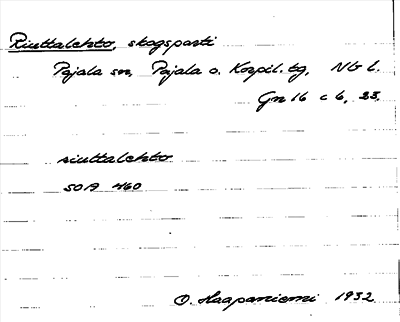 Riuttalehto, skogsparti
Pajala sn, Pajala o. Korpil. tg, Nb l.
Gn 16 c 6, 23.
riuttalehto
SOA 460
O. Haapaniemi 1932